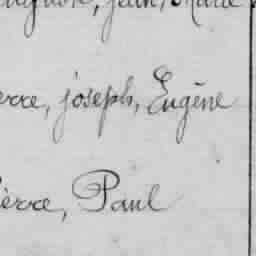 Auguste, Jean, Marie
erre, joseph, Eugène
ierre, Paul